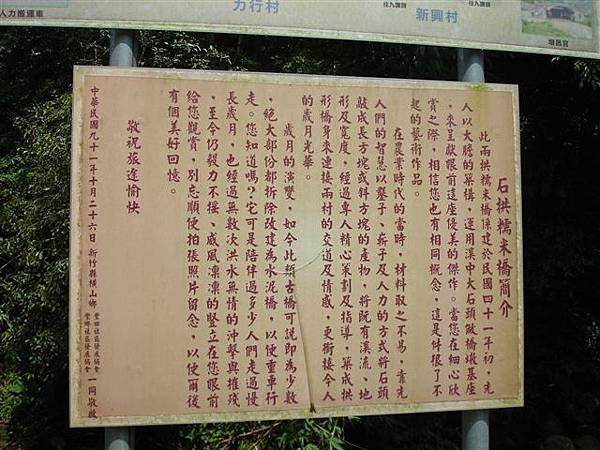 人力搬運車
力行村
往九讚頭
新興村
往九讚頭
石拱糯米橋簡介
此兩拱糯米橋係建於民國四十一年初,先
人以大膽的築構,運用溪中大石頭做橋墩基座
,來呈獻眼前這座優美的傑作。當您在細心欣
賞之際,相信您也有相同概念,這是件很了不
起的藝術作品。
在農業時代的當時,材料取之不易,靠先
人們的智慧以鑿子、斧子及人力的方式將石頭
敲成長方塊或斜方塊的產物,將既有溪流、地
形及寬度,經過專人精心策劃及指導,築成拱
形橋身來連接兩村的交道及情感,更銜接令人
的歲月光華。
歲月的演變,如今此類古橋可說即為少數
,絕大部份都拆除改建為水泥橋,以便重車行
走。您知道嗎?它可是陪伴過多少人們走過慢
長歲月,也經過無數次洪水無情的沖擊與摧殘
,至今仍毅力不搖、威風凜凜的豎立在您眼前
給您觀賞,別忘順便拍張照片留念,以便爾後
有個美好回憶。
敬祝旅途愉快
中華民國九十一年十月二十六日 新竹縣橫山鄉 豐田社區發展協會 豐鄉社區發展協會 一同敬啟